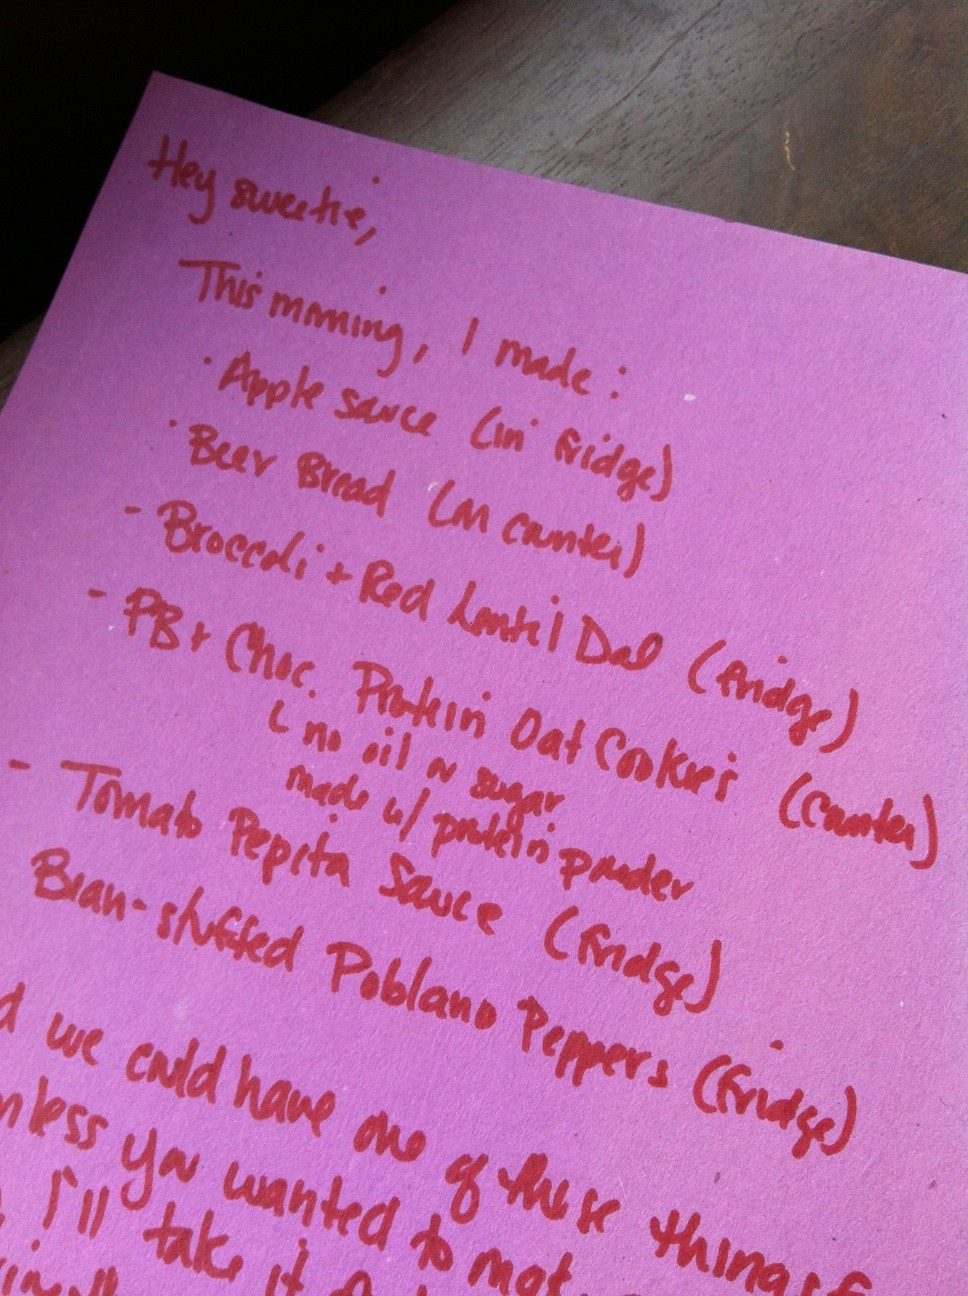 Hey sweetie,
This morning, I made:
· Apple sauce (in fridge)
· Beer Bread (on counter)
- Broccoli + Red Lentil Dal (fridge)
- PB + Choc. Protein Oat Cookies (counter)
no oil or sugar
made w/ protein powder
- Tomato Pepita Sauce (fridge)
Bean-stuffed Poblano Peppers (fridge)
we could have one of these things
unless you wanted to
I'll take it